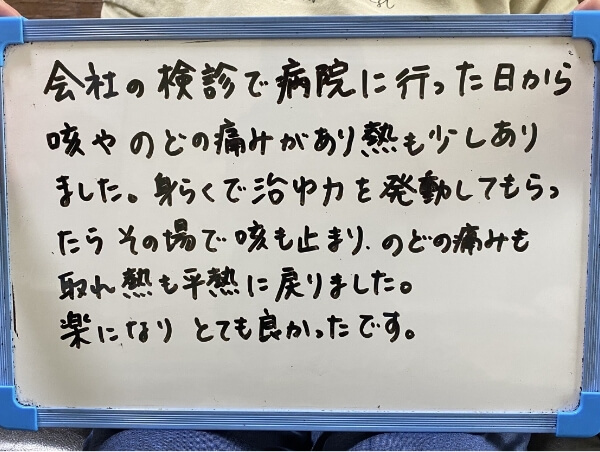 会社の検診で病院に行った日から
咳やのどの痛みがあり熱も少しあり
ました。身らくで治ゆ力を発動してもらっ
たらその場で咳も止まり、のどの痛みも
取れ熱も平熱に戻りました。
楽になりとても良かったです。